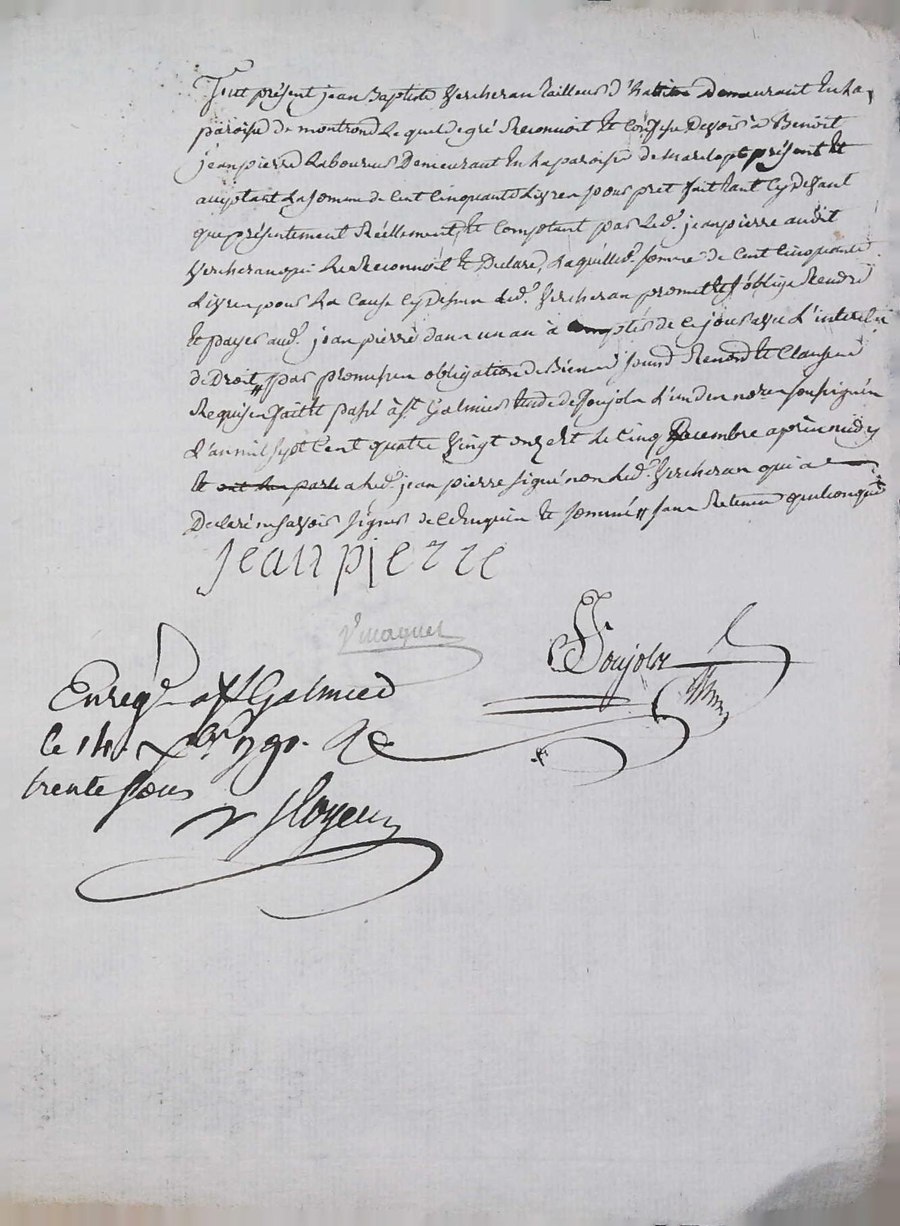 Fut présent jean Baptiste Vercheran tailleur d'habits Demeurant En La
paroisse de montrond Lequel de gré Reconnoit Et Confesse Devoir à Benoit
jean pierre Laboureur Demeurant En La paroisse de présent Et
acceptant La somme de Cent Cinquante Livres pour pret fait tant Cy devant
que présentement Réellement Et Comptant par Led. jean pierre audit
Vercheran qui Le Reconnoit Et Declare, Laquelle d. somme de Cent Cinquante
Livres pour La Cause Cy dessus Led. Vercheran promet Et s'oblige Rendre
Et payer aud. jean pierre dans un an à Compter de Ce jour avec L'interest
de Droit, par promesses obligation de Biens Renond Et Clauses
Requises fait Et passé à St Galmier Etude de Soujoln L'un des nores soussignés
L'an mil sept Cent quatre Vingt onze Et Le Cinq Décembre après midy
Et a Led. jean pierre signé non Led. Vercheran qui a
Declaré ne savoir signer de Ce Enquis Et sommé sans Retenue quelconque
jean pierre
Enreg. a St Galmier
Ce 14. Xbre 1791.
trente sous